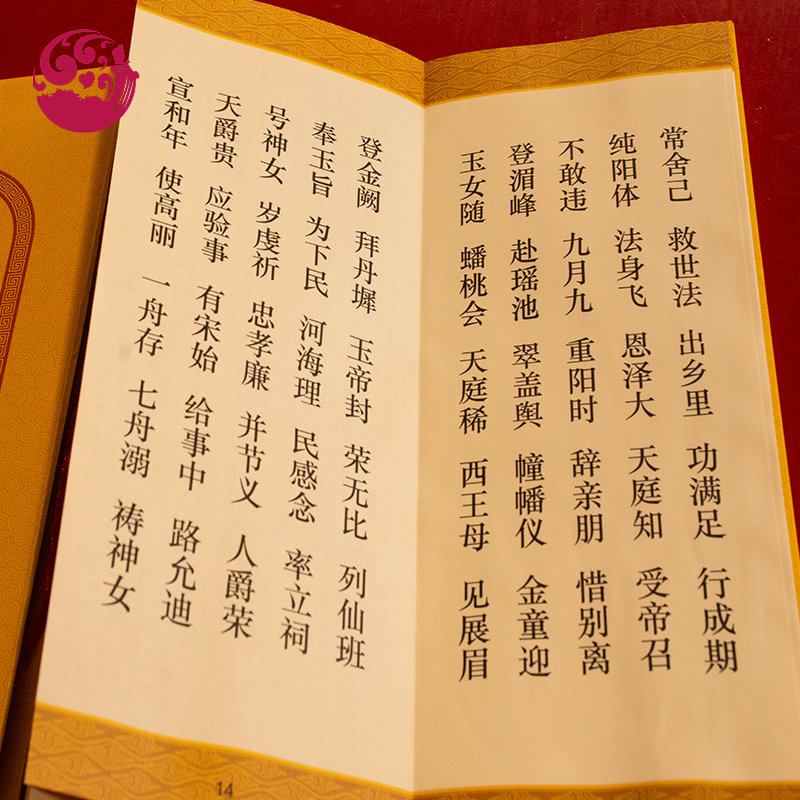 常舍己 救世法 出乡里 功满足 行成期
纯阳体 法身飞 恩泽大 天庭知 受帝召
不敢违 九月九 重阳时 辞亲朋 惜别离
登湄峰 赴瑶池 翠盖舆 幢幡仪 金童迎
玉女随 蟠桃会 天庭稀 西王母 见展眉
登金阙 拜丹墀 玉帝封 荣无比 列仙班
奉玉旨 为下民 河海理 民感念 率立祠
号神女 岁虔祈 忠孝廉 并节义 人爵荣
天爵贵 应验事 有宋始 给事中 路允迪
宣和年 使高丽 一舟存 七舟溺 祷神女
14